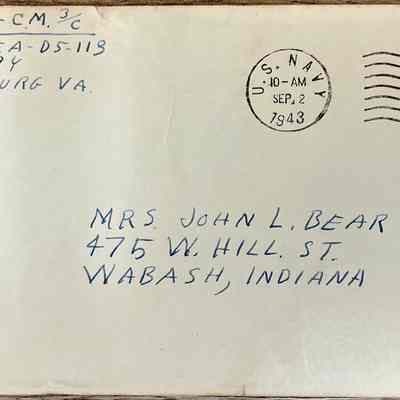 - C.M. 3/C
EA-D5-113
URG VA.
U.S. NAVY
10-AM
SEP. 2
1943
MRS. JOHN L. BEAR
475 W. HILL. ST.
WABASH, INDIANA